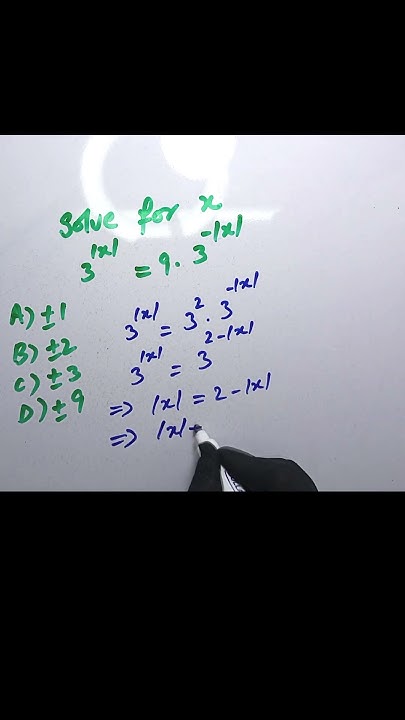 Solve for x
3^|x| = 9 · 3^-|x|
A) ±1
B) ±2
C) ±3
D) ±9
3^|x| = 3^2 · 3^-|x|
3^|x| = 3^2-|x|
⇒ |x| = 2 - |x|
⇒ |x| +